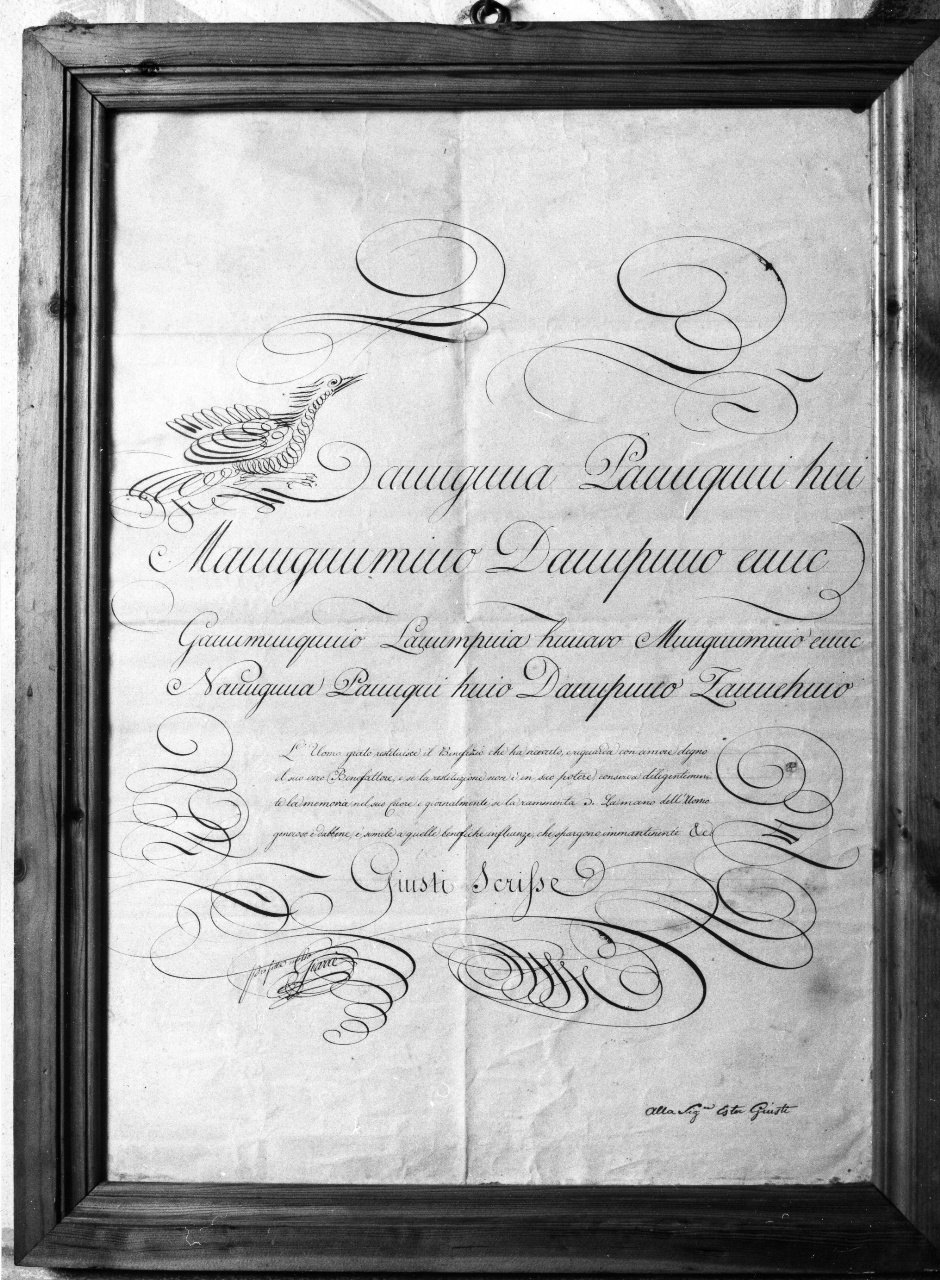 Dauuguua Pauuquui hui
Mauuguumiuo Dauupuuo euuc
Gauumuuquuio Lauumpuia huuavo Muuguumiuio euuc
Nauuguua Pauuqui huio Dauupuuo Zauuehuio
L'Uomo grato restituisce il Benefizio che ha ricevuto, e riguarda con amore degno
il suo vero Benefattore, e se la restituzione non è in suo potere, conserva diligentemen
te la memoria nel suo cuore e giornalmente se la rammenta La mano dell'Uomo
generoso è dabbene, è simile a quelle benefiche influenze, che spargono immantinente &c.
Giusti Scrisse
Alla Sig.ra Ester Giusti